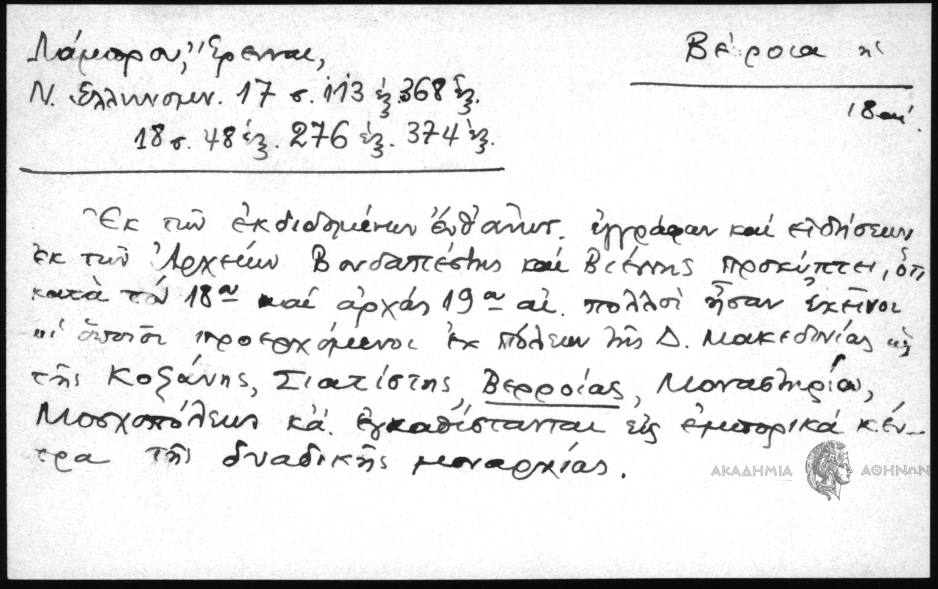 Λάμπρου, Ἔρευναι,
Ν. Ἑλληνομν. 17 σ. 113 ἑξ. 368 ἑξ.
18 σ. 48 ἑξ. 276 ἑξ. 374 ἑξ.
Βέροια
18 αἰ.
Ἐκ τῶν ἐκδιδομένων ἐνταῦθα ἐγγράφων καὶ εἰδήσεων
ἐκ τῶν Ἀρχείων Βουδαπέστης καὶ Βιέννης προκύπτει, ὅτι
κατὰ τὸν 18ον καὶ ἀρχάς 19ου αἰ. πολλοὶ ἦσαν ἐκεῖνοι
οἱ ὁποῖοι προερχόμενοι ἐκ πόλεων τῆς Δ. Μακεδονίας ὡς
τῆς Κοζάνης, Σιατίστης, Βερροίας, Μοναστηρίου,
Μοσχοπόλεως κἄ. ἐγκαθίστανται εἰς ἐμπορικά κέν-
τρα τῆς δυαδικῆς μοναρχίας.
ΑΚΑΔΗΜΙΑ ΑΘΗΝΩΝ